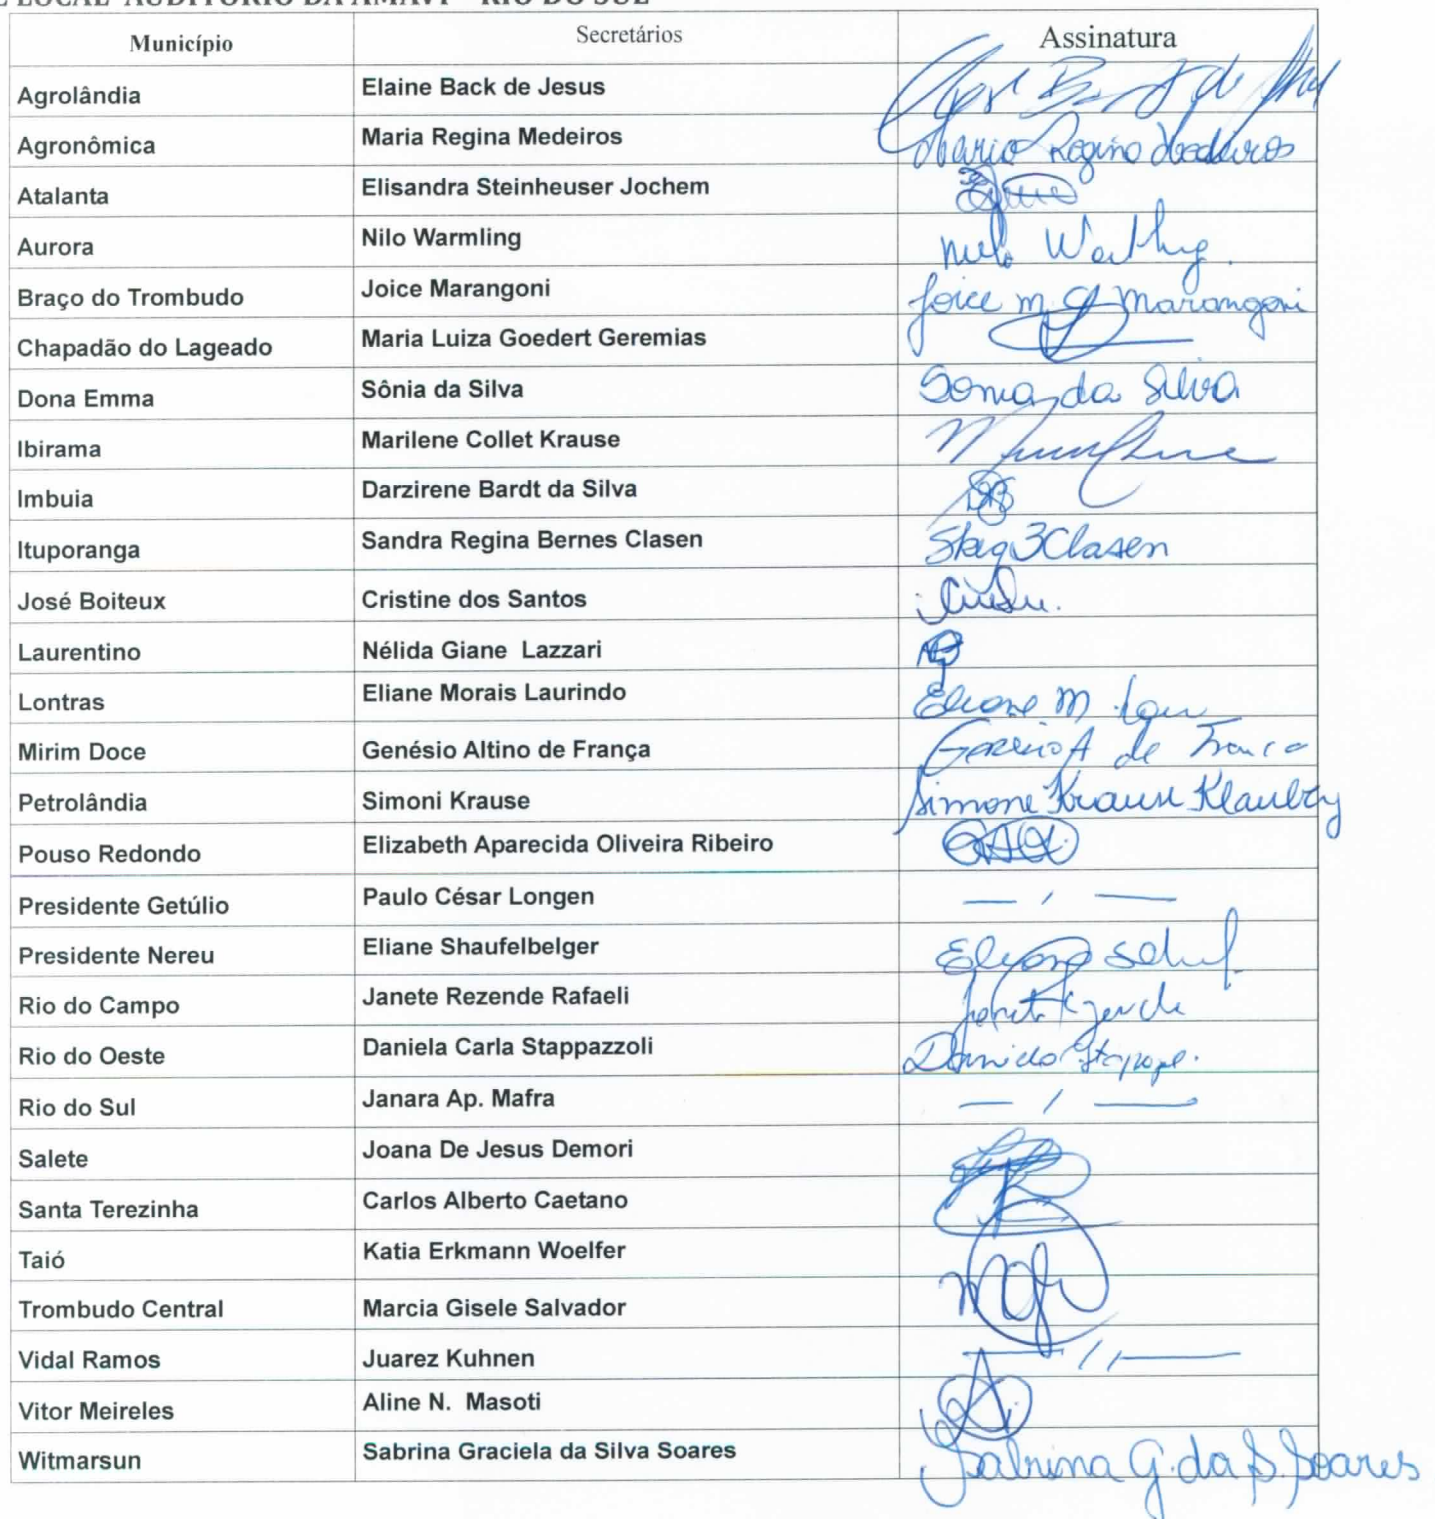 E LOCAL AUDITÓRIO DA AMAVI – RIO DO SUL
Município Secretários Assinatura
Agrolândia Elaine Back de Jesus
Agronômica Maria Regina Medeiros Maria Regina Medeiros
Atalanta Elisandra Steinheuser Jochem
Aurora Nilo Warmling Nilo
Braço do Trombudo Joice Marangoni Joice M. Marangoni
Chapadão do Lageado Maria Luiza Goedert Geremias
Dona Emma Sônia da Silva Sonia da Silva
Ibirama Marilene Collet Krause
Imbuia Darzirene Bardt da Silva
Ituporanga Sandra Regina Bernes Clasen Clasen
José Boiteux Cristine dos Santos
Laurentino Nélida Giane Lazzari
Lontras Eliane Morais Laurindo Eliane M.
Mirim Doce Genésio Altino de França A de França
Petrolândia Simoni Krause Simone Krause
Pouso Redondo Elizabeth Aparecida Oliveira Ribeiro
Presidente Getúlio Paulo César Longen — / —
Presidente Nereu Eliane Shaufelbelger Eliane
Rio do Campo Janete Rezende Rafaeli
Rio do Oeste Daniela Carla Stappazzoli Daniela
Rio do Sul Janara Ap. Mafra — / —
Salete Joana De Jesus Demori
Santa Terezinha Carlos Alberto Caetano
Taió Katia Erkmann Woelfer
Trombudo Central Marcia Gisele Salvador
Vidal Ramos Juarez Kuhnen — / / —
Vitor Meireles Aline N. Masoti
Witmarsun Sabrina Graciela da Silva Soares Sabrina G. da S. Soares